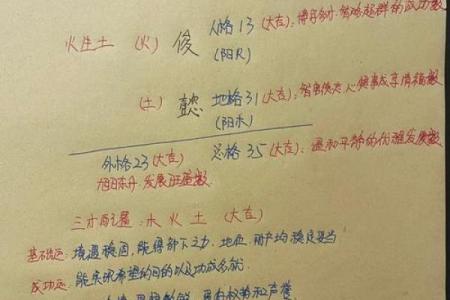 火生土 (火) 俊 人格13(大吉): 博学多才智略超群的成功数
(阳火)
(土) 懿 地格31(大吉): 智勇俱志心想事成享清福数
(阳木)
外格23(大吉) 总格35(大吉): 温和平静的优雅发展数
旭日东升发展旺盛数
三才配置: 水火土 (大吉)
基础运: 境遇稳固,能得部下之力、地位、财产均稳良妥当
成功运: 能实现希望的目的以及功成名就